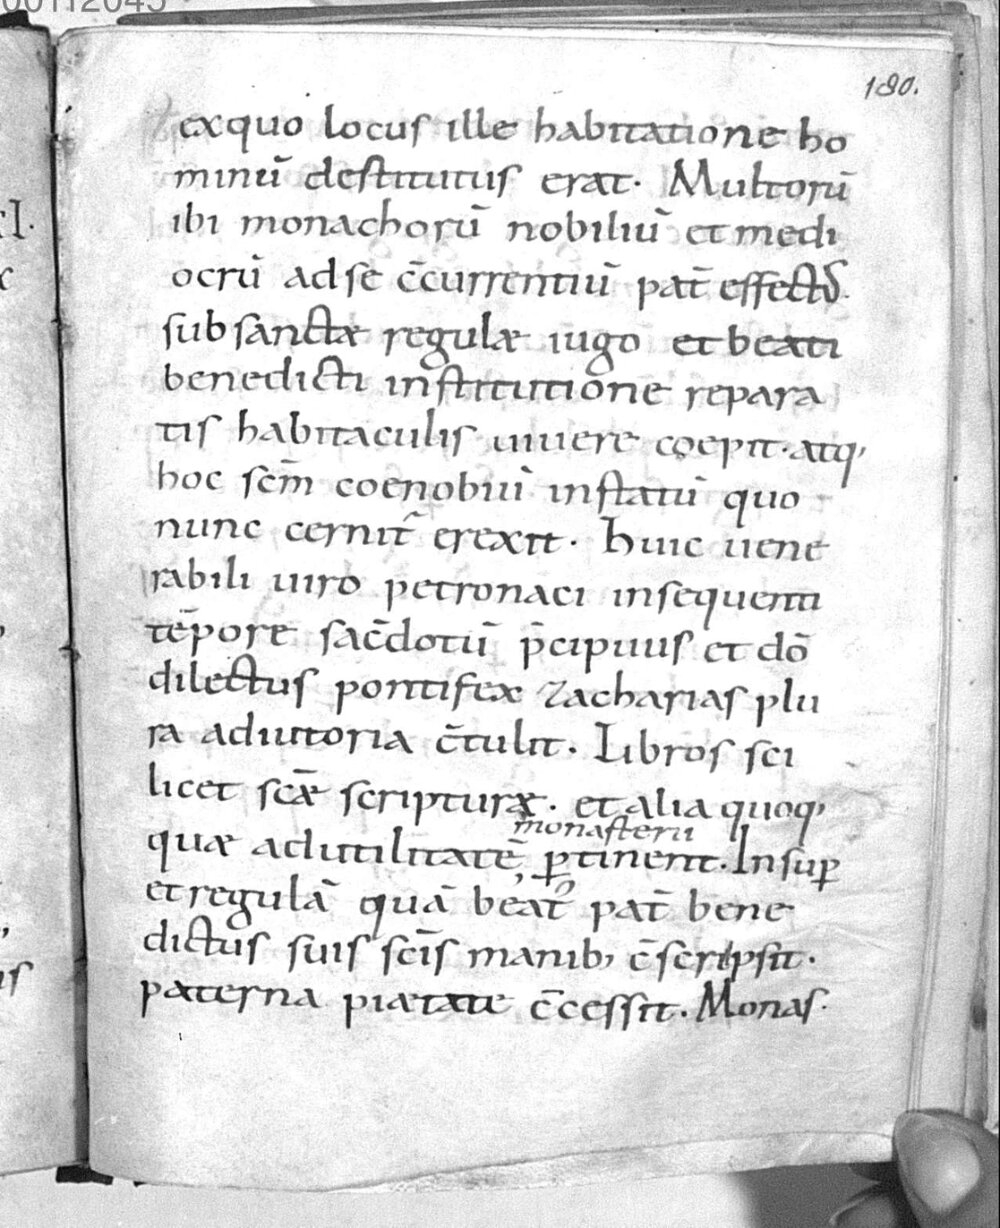 180.
exquo locuſ ille habitatione ho
minū deſtitutuſ erat. Multorū
ibi monachorū nobiliū et medi
ocrū adſe c̄currentiū pat̄ effectꝰ.
ſub ſanctæ regulæ iugo et beati
benedicti inſtitutione repara
tiſ habitaculiſ uiuere coepit. atq,
hoc ſcm̄ coenobiū inſtatū quo
nunc cernit̄ erexit. Huic uene
rabili uiro petronaci inſequenti
tēpore ſac̄dotū p̄cipuuſ et dō
dilectuſ pontifex Zachariaſ plu
ra adiutoria c̄tulit. Libroſ ſci
licet ſcǣ ſcripturæ. et alia quoq,
monaſterii
quæ adutilitatē, ꝑtinent. Inſuꝑ
et regulā quā beat᷒ pat̄ bene
dictuſ ſuiſ ſcīſ manib, c̄ſcripſit.
paterna piætate c̄ceſſit. Monaſ.